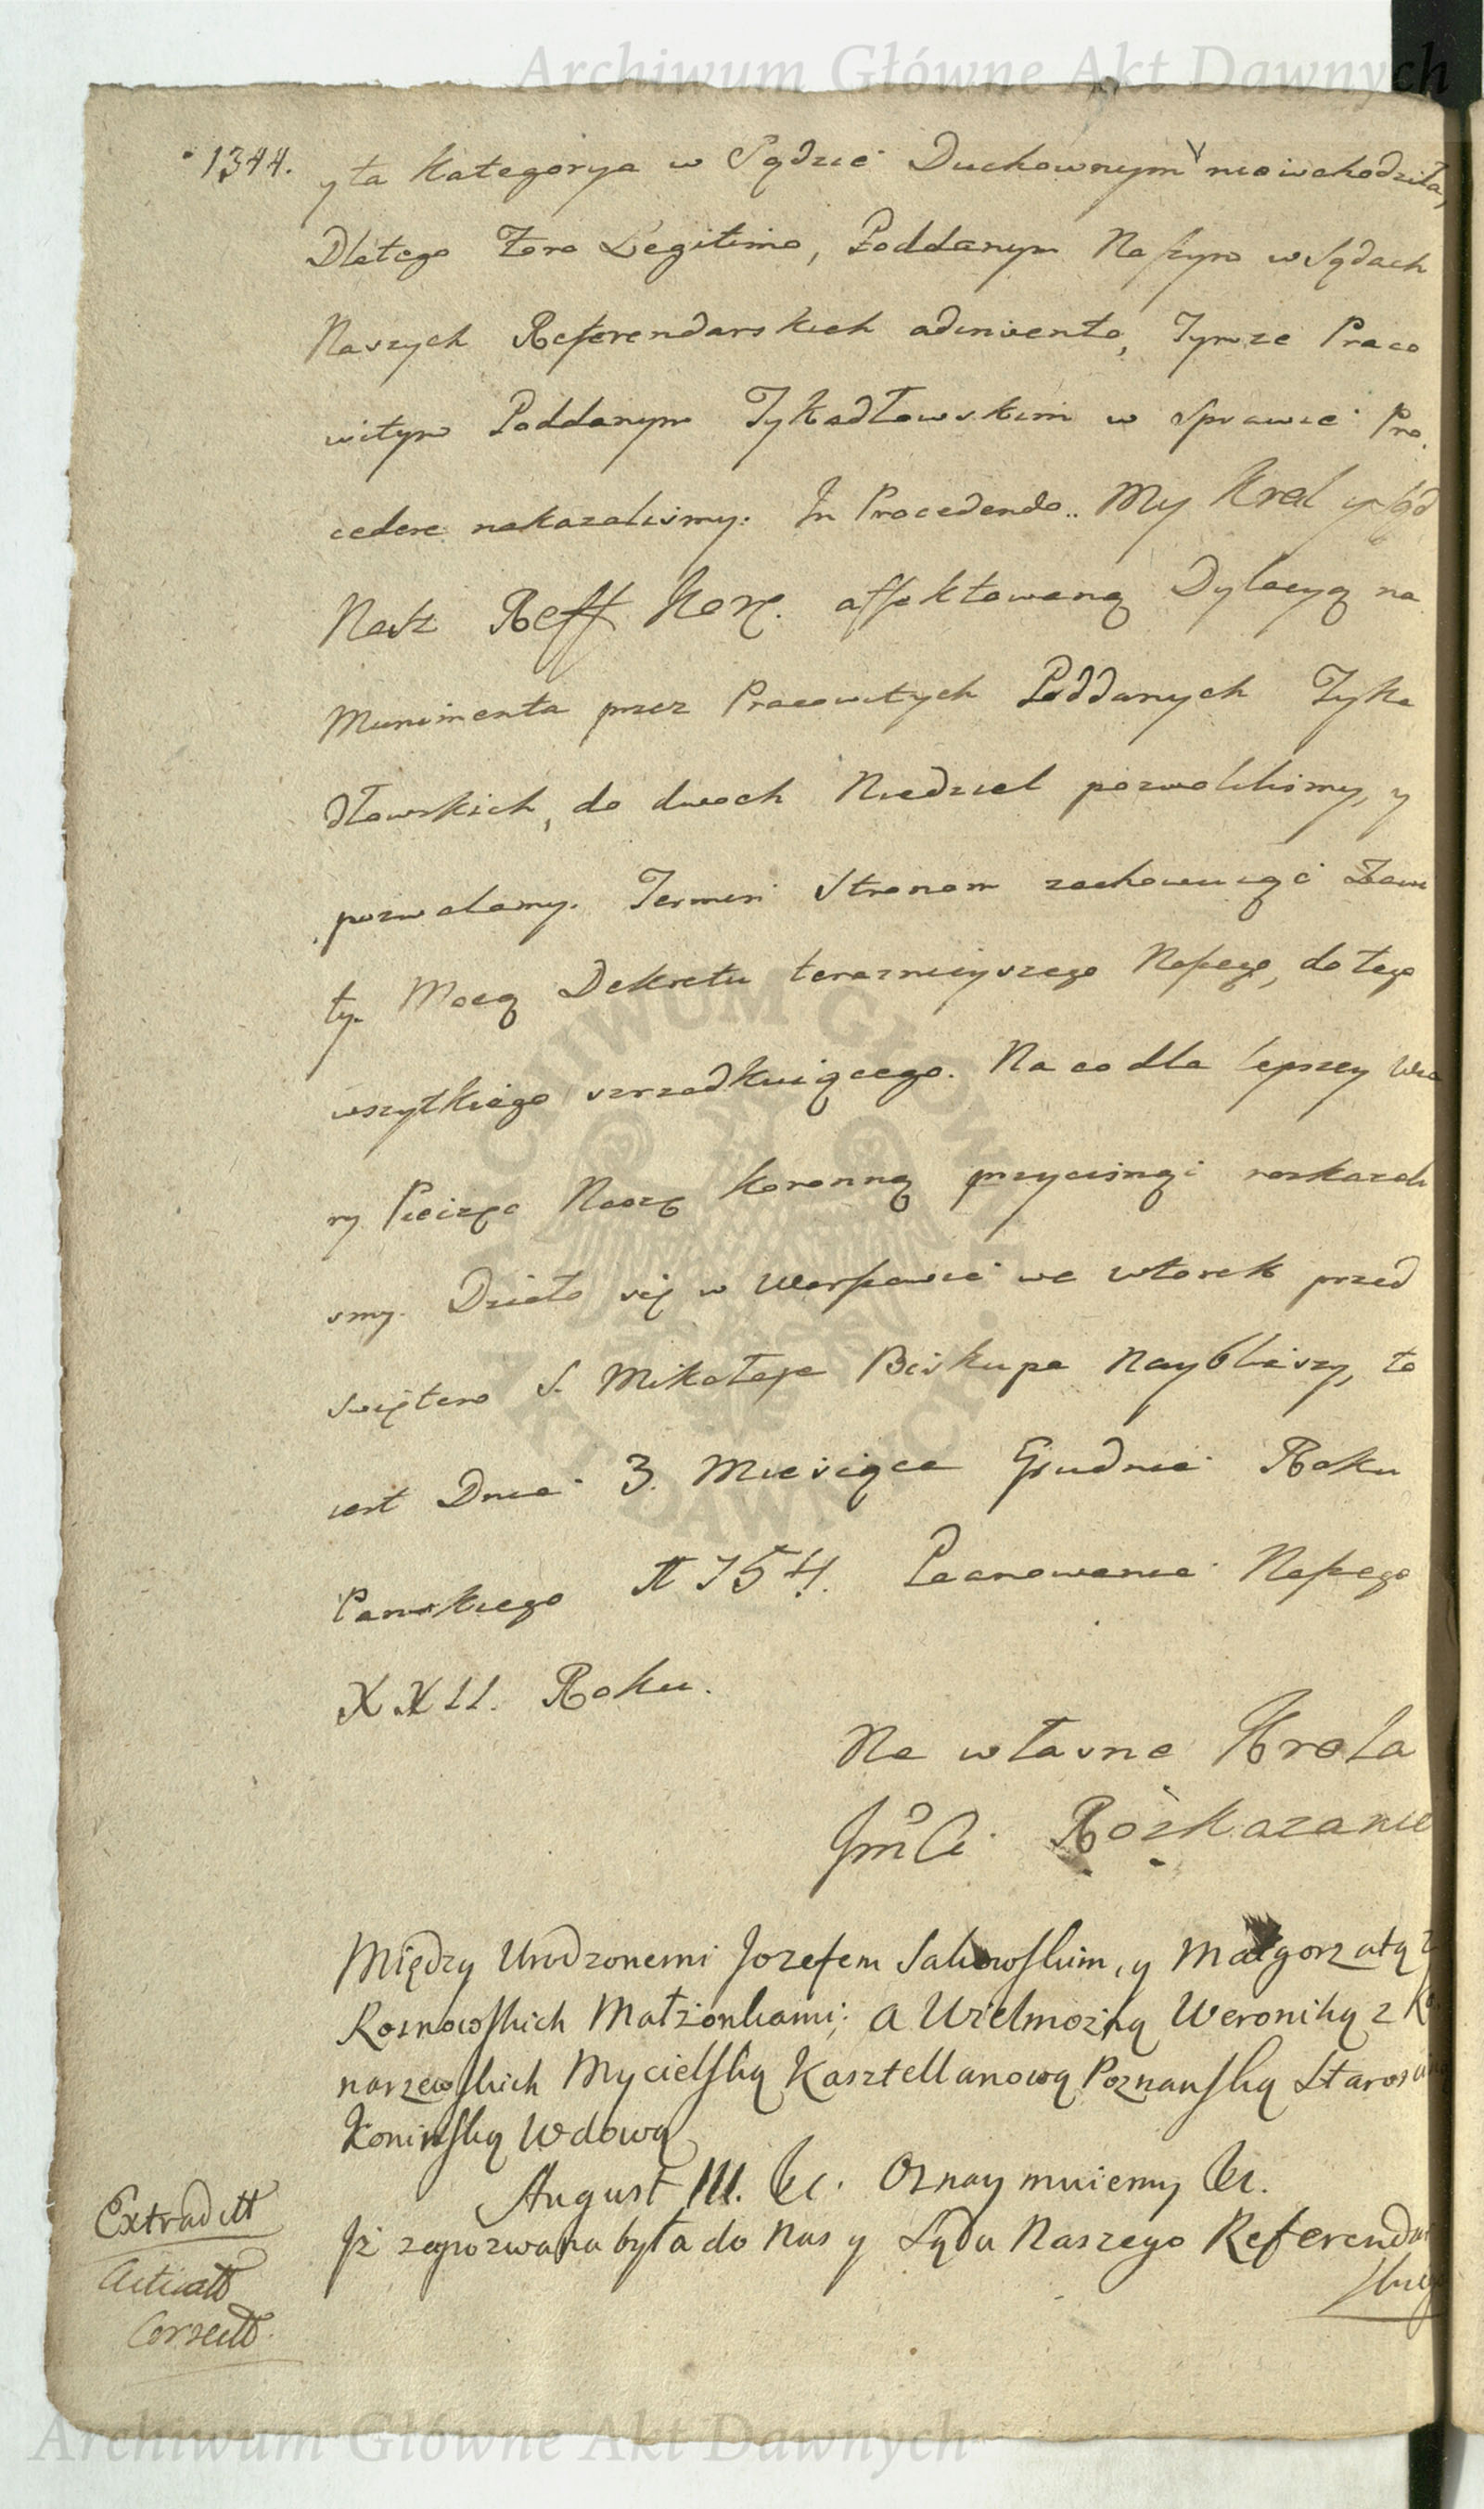 Archiwum Główne Akt Dawnych
1344. y ta Kategorya w Sądzie Duchownym niewchodziła,
Dlatego Foro Legitimo, Poddanym Naszym w Sądach
Naszych Referendarskich adinvento, Tymze Praco
witym Poddanym Tykadłowskim w Sprawie Pro,
cedere nakazalismy. In Procedendo.. My Krol y Sąd
Nasz Reff Korą. affektowaną Dylacyą na
Munimenta przez Pracowitych Poddanych Tyka
dłowskich, do dwoch Niedziel pozwolilismy, y
pozwalamy. Termin Stronom zachowuiąc Zawi
ty. Mocą Dekretu teraznieyszego Naszego, do tego
wszytkiego szrzodkuiącego. Na co dla lepszey Wia
ry Pieczęc Naszą Koronną przycisnąć roskazali
smy. Działo się w Warszawie we wtorek przed
Swiętem S. Mikołaja Biskupa Nayblizszy, to
iest Dnia 3. Miesiąca Grudnia Roku
Panskiego 1754. Panowania Naszego
XXII. Roku.
Na własne Krola
Jmci Rozkazanie
Między Urodzonemi Jozefem Sakowskim, y Małgorzatą z
Rosnowskich Małzonkami; a Wielmozną Weroniką z Ko
narzewskich Mycielską Kasztellanową Poznanską Starosciną
Koninską Wdową
August III. &c. Oznaymuiemy &c.
Iz zapozwana była do Nas y Sądu Naszego Referendar
skiego
Extraditt
Acticatt
Correctt.
ARCHIWUM GŁÓWNE AKT DAWNYCH
Archiwum Główne Akt Dawnych